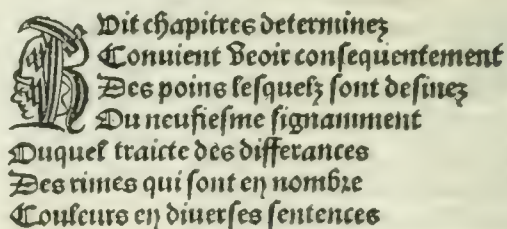 Huit chapitres determinez
Conuient veoir consequentement
Des poins lesquelz sont definez
Du neufiesme signamment
Duquel traicte des differances
Des rimes qui sont en nombre
Couleurs en diuerses sentences